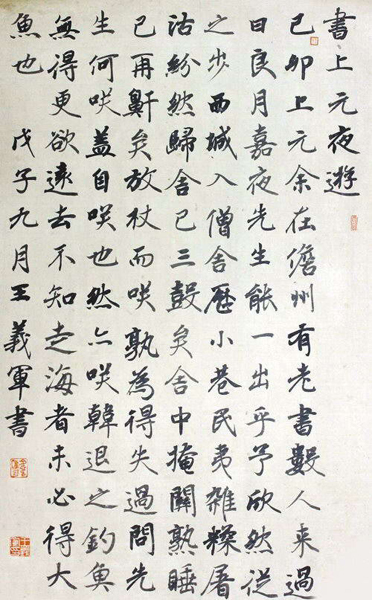 書上元夜遊
己卯上元余在儋州有老書數人來過
曰良月嘉夜先生能一出乎予欣然從
之步西城入僧舍歷小巷民夷雜糅屠
沽紛然歸舍已三鼓矣舍中掩關熟睡
已再鼾矣放杖而咲孰為得失過問先
生何咲蓋自咲也然亦咲韓退之釣魚
無得更欲遠去不知走海者未必得大
魚也 戊子九月王義軍書